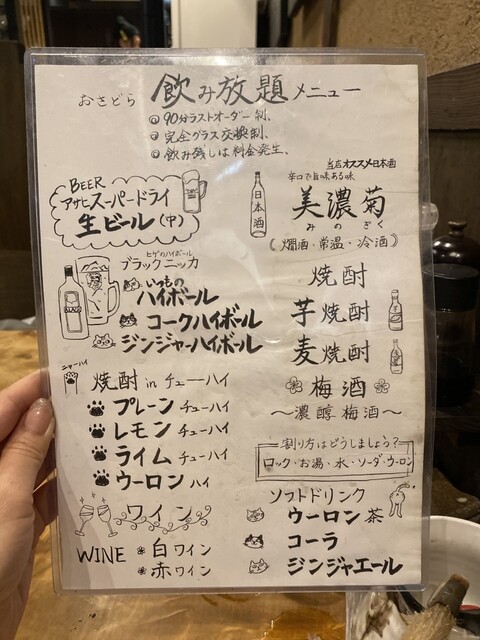 おさどら 飲み放題メニュー
①90分ラストオーダー制、
②完全グラス交換制、
③飲み残しは料金発生、
BEER
アサヒスーパードライ
生ビール(中)
ヒゲのハイボール
ブラックニッカ
いつもの
ハイボール
コークハイボール
ジンジャーハイボール
ニャーハイ
焼酎 in チューハイ
プレーン チューハイ
レモン チューハイ
ライム チューハイ
ウーロン ハイ
ワイン
WINE
白ワイン
赤ワイン
日本酒
当店オススメ日本酒
辛口で旨味ある味
美濃菊
みのぎく
(燗酒・常温・冷酒)
焼酎
芋焼酎
麦焼酎
梅酒
〜濃醇梅酒〜
割り方はどうしましょう?
ロック・お湯・水・ソーダ・ウーロン
ソフトドリンク
ウーロン茶
コーラ
ジンジャエール